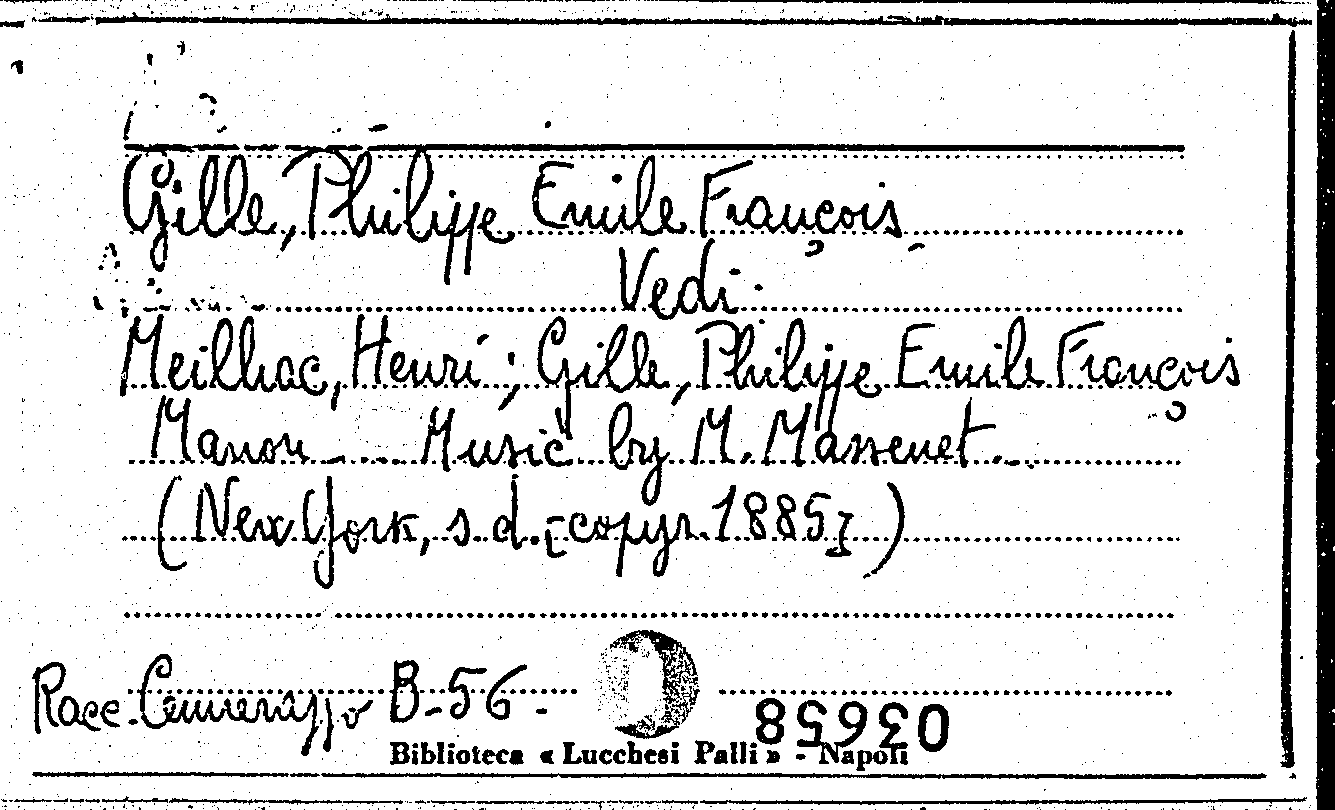 Gille, Philippe Emile François
Vedi:
Meilhac, Henri; Gille, Philippe Emile François
Manon ... Music by M. Massenet...
(New York, s.d. [copyr. 1885])
Racc. Cennerazzo B-56.
03658
Biblioteca « Lucchesi Palli » - Napoli